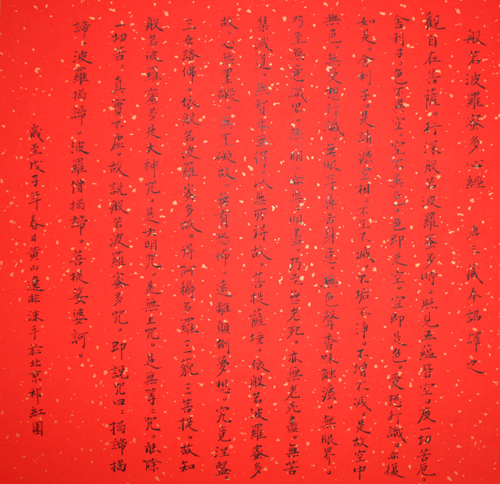 般若波羅蜜多心經 唐三藏奉詔譯之
觀自在菩薩。行深般若波羅蜜多時。照見五蘊皆空。度一切苦厄。
舍利子。色不異空。空不異色。色即是空。空即是色。受想行識。亦復
如是。舍利子。是諸法空相。不生不滅。不垢不淨。不增不減。是故空中
無色。無受想行識。無眼耳鼻舌身意。無色聲香味觸法。無眼界。
乃至無意識界。無無明。亦無無明盡。乃至無老死。亦無老死盡。無苦
集滅道。無智亦無得。以無所得故。菩提薩埵。依般若波羅蜜多
故。心無罣礙。無罣礙故。無有恐怖。遠離顛倒夢想。究竟涅盤。
三世諸佛。依般若波羅蜜多故。得阿耨多羅三藐三菩提。故知
般若波羅蜜多。是大神咒。是大明咒。是無上咒。是無等等咒。能除
一切苦。真實不虛。故說般若波羅蜜多咒。即說咒曰。揭諦揭
諦。波羅揭諦。波羅僧揭諦。菩提娑婆訶。
歲至戊子年春日黃山逸非沐手於北京祁紅園